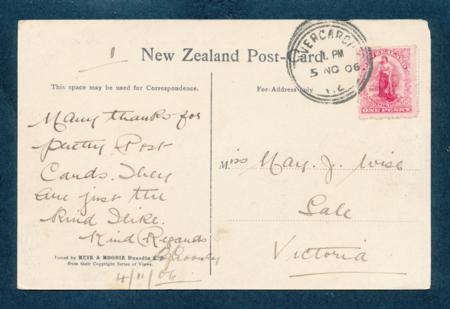 New Zealand Post-Card.
This space may be used for Correspondence.
For Address only
Many thanks for
pretty Post
Cards. They
are just the
kind I like.
Kind Regards
4/11/06
Issued by MUIR & MOODIE Dunedin N.Z.
from their Copyright Series of Views.
INVERCARGILL
1 PM
5 NO 06
N.Z.
ZEALAND
ONE PENNY
Miss May. J. Wise
Sale
Victoria